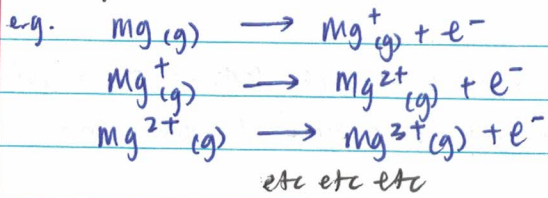 e.g. Mg (g) → Mg⁺(g) + e⁻
Mg⁺(g) → Mg²⁺(g) + e⁻
Mg²⁺(g) → Mg³⁺(g) + e⁻
etc etc etc